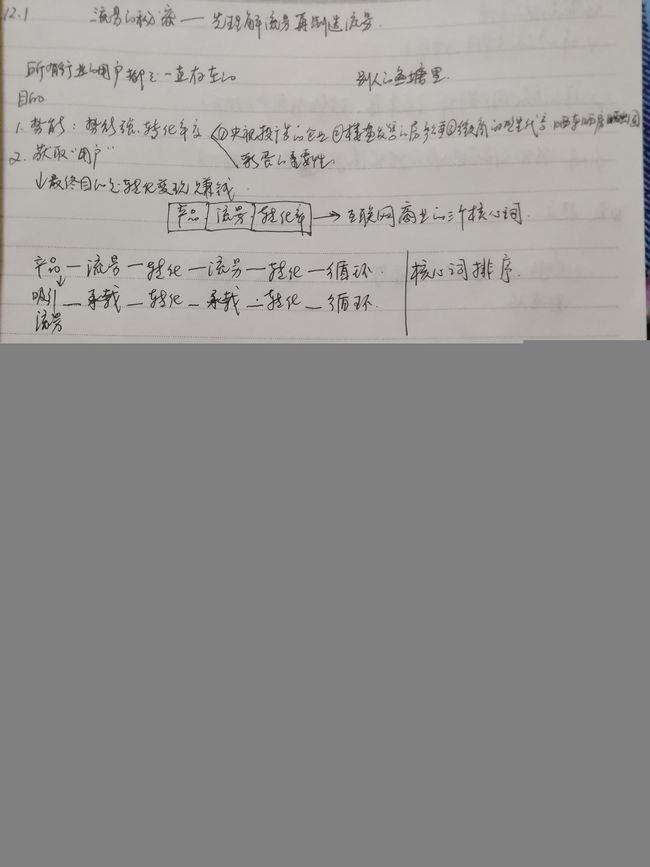 12.1 流量的秘密——先理解流量再制造流量.
所有行业的用户都是一直存在的 别人的鱼塘里.
目的
1. 势能: 势能强.转化率高 ①央视投广告的企业 ②楼盘
2. 获取“用户” 的重要性.
↓最终目的是转化变现赚钱
产品 流量 转化率 → 互联网商业的三个核心词.
产品—流量—转化—流量—转化—循环. 核心词排序.
吸引—承载—转化—承载—转化—循环.
流量